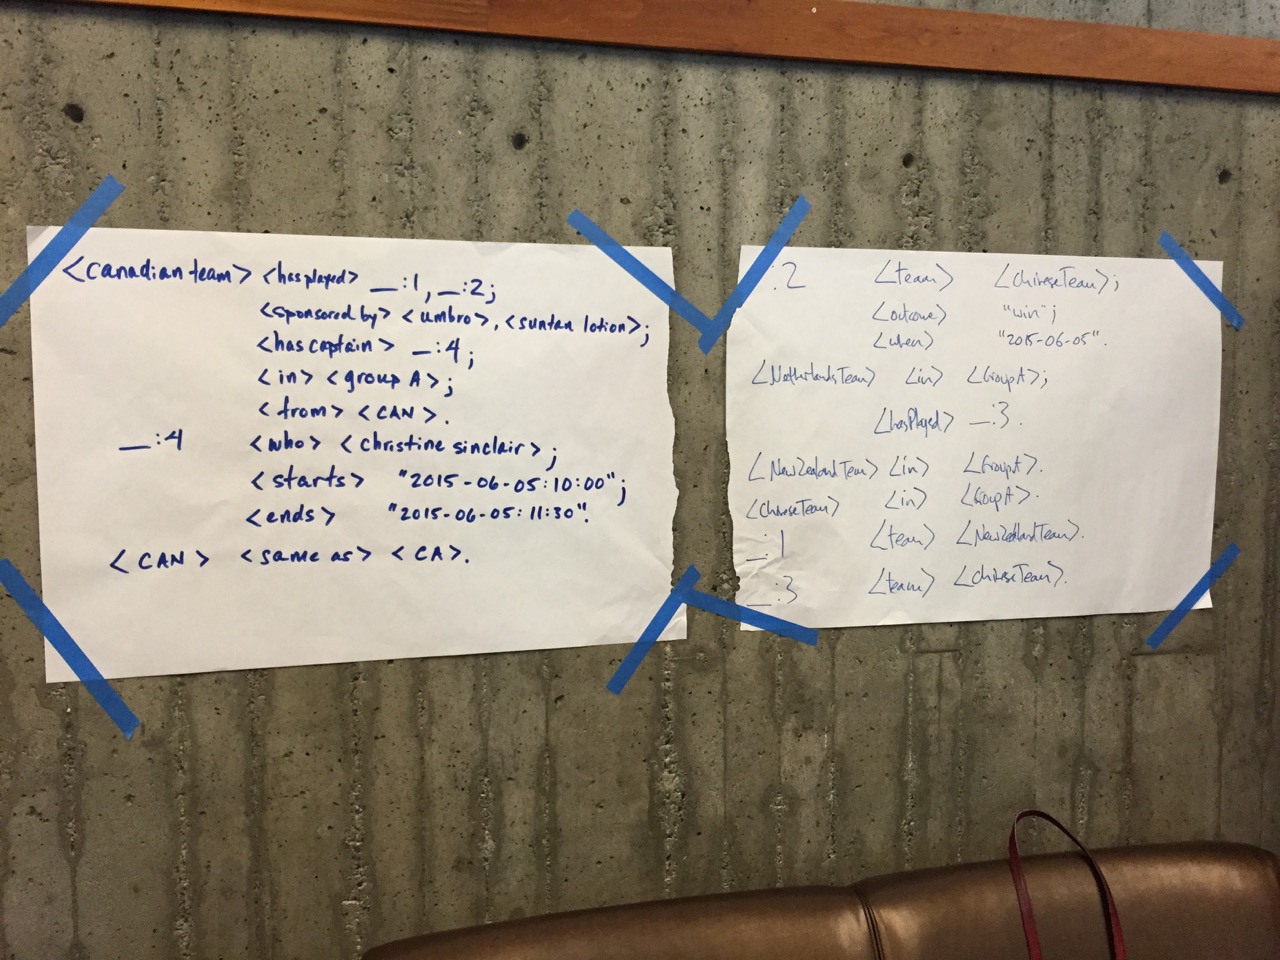 <canadian team> <has played> __:1, __:2;
<sponsored by> <umbro>, <suntan lotion>;
<has captain> __:4;
<in> <group A>;
<from> <CAN>.
__:4 <who> <christine sinclair>;
<starts> "2015-06-05:10:00";
<ends> "2015-06-05:11:30".
<CAN> <same as> <CA>.
:2 <team> <ChineseTeam>;
<outcome> "win";
<when> "2015-06-05".
<NetherlandsTeam> <in> <GroupA>;
<hasPlayed> __:3.
<NewZealandTeam> <in> <GroupA>.
<ChineseTeam> <in> <GroupA>.
__:1 <team> <NewZealandTeam>.
__:3 <team> <ChineseTeam>.